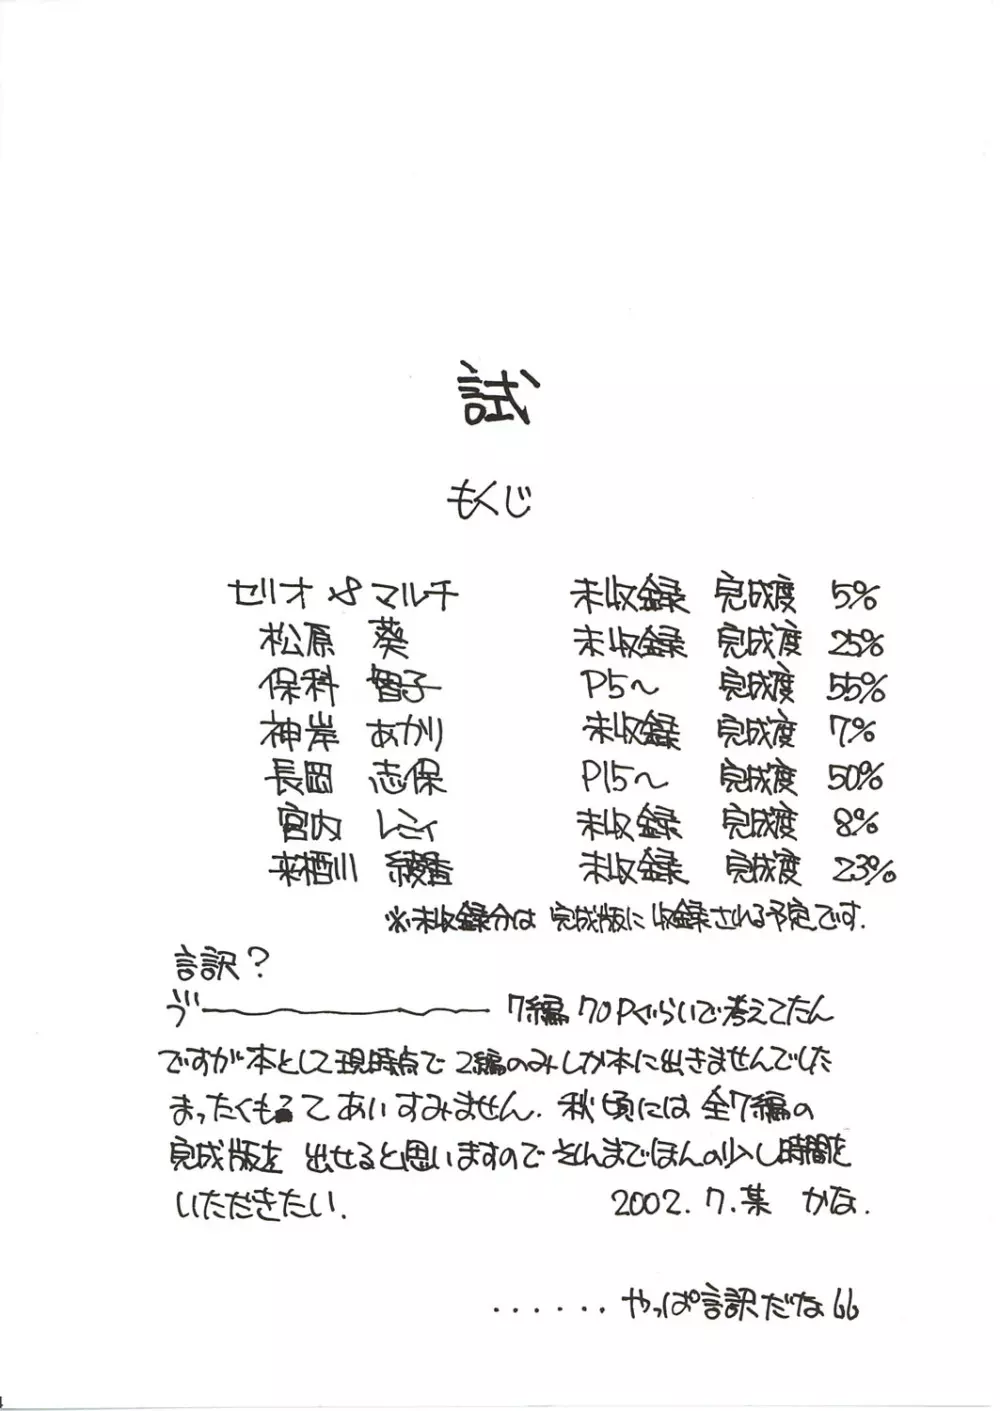 試
もくじ
セリオ & マルチ 未収録 完成度 5%
松原 葵 未収録 完成度 25%
保科 智子 P5～ 完成度 55%
神岸 あかり 未収録 完成度 7%
長岡 志保 P15～ 完成度 50%
宮内 レミィ 未収録 完成度 8%
来栖川 綾香 未収録 完成度 23%
※未収録分は 完成版に 収録される予定です.
言訳?
7編 70Pぐらいで考えてたん
ですが本として現時点で 2編のみしか本に出きませんでした
まったくもって あいすみません. 秋頃には 全7編の
完成版を 出せると思いますので そんまでほんの少し時間を
いただきたい.
2002. 7. 某 かな.
・・・・・・やっぱ言訳だな